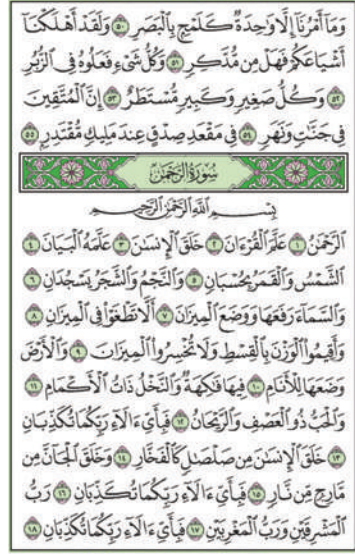 وَمَآ أَمْرُنَآ إِلَّا وَٰحِدَةٌ كَلَمْحٍۭ بِٱلْبَصَرِ ٥٠ وَلَقَدْ أَهْلَكْنَآ
أَشْيَاعَكُمْ فَهَلْ مِن مُّدَّكِرٍ ٥١ وَكُلُّ شَىْءٍ فَعَلُوهُ فِى ٱلزُّبُرِ
٥٢ وَكُلُّ صَغِيرٍ وَكَبِيرٍ مُّسْتَطَرٌ ٥٣ إِنَّ ٱلْمُتَّقِينَ
فِى جَنَّٰتٍ وَنَهَرٍ ٥٤ فِى مَقْعَدِ صِدْقٍ عِندَ مَلِيكٍ مُّقْتَدِرٍۭ ٥٥
سُورَةُ الرَّحْمَٰن
بِسْمِ ٱللَّهِ ٱلرَّحْمَٰنِ ٱلرَّحِيمِ
ٱلرَّحْمَٰنُ ١ عَلَّمَ ٱلْقُرْءَانَ ٢ خَلَقَ ٱلْإِنسَٰنَ ٣ عَلَّمَهُ ٱلْبَيَانَ ٤
ٱلشَّمْسُ وَٱلْقَمَرُ بِحُسْبَانٍ ٥ وَٱلنَّجْمُ وَٱلشَّجَرُ يَسْجُدَانِ ٦
وَٱلسَّمَآءَ رَفَعَهَا وَوَضَعَ ٱلْمِيزَانَ ٧ أَلَّا تَطْغَوْا۟ فِى ٱلْمِيزَانِ ٨
وَأَقِيمُوا۟ ٱلْوَزْنَ بِٱلْقِسْطِ وَلَا تُخْسِرُوا۟ ٱلْمِيزَانَ ٩ وَٱلْأَرْضَ
وَضَعَهَا لِلْأَنَامِ ١٠ فِيهَا فَٰكِهَةٌ وَٱلنَّخْلُ ذَاتُ ٱلْأَكْمَامِ ١١
وَٱلْحَبُّ ذُو ٱلْعَصْفِ وَٱلرَّيْحَانُ ١٢ فَبِأَىِّ ءَالَآءِ رَبِّكُمَا تُكَذِّبَانِ
١٣ خَلَقَ ٱلْإِنسَٰنَ مِن صَلْصَٰلٍ كَٱلْفَخَّارِ ١٤ وَخَلَقَ ٱلْجَآنَّ مِن
مَّارِجٍ مِّن نَّارٍ ١٥ فَبِأَىِّ ءَالَآءِ رَبِّكُمَا تُكَذِّبَانِ ١٦ رَبُّ
ٱلْمَشْرِقَيْنِ وَرَبُّ ٱلْمَغْرِبَيْنِ ١٧ فَبِأَىِّ ءَالَآءِ رَبِّكُمَا تُكَذِّبَانِ ١٨